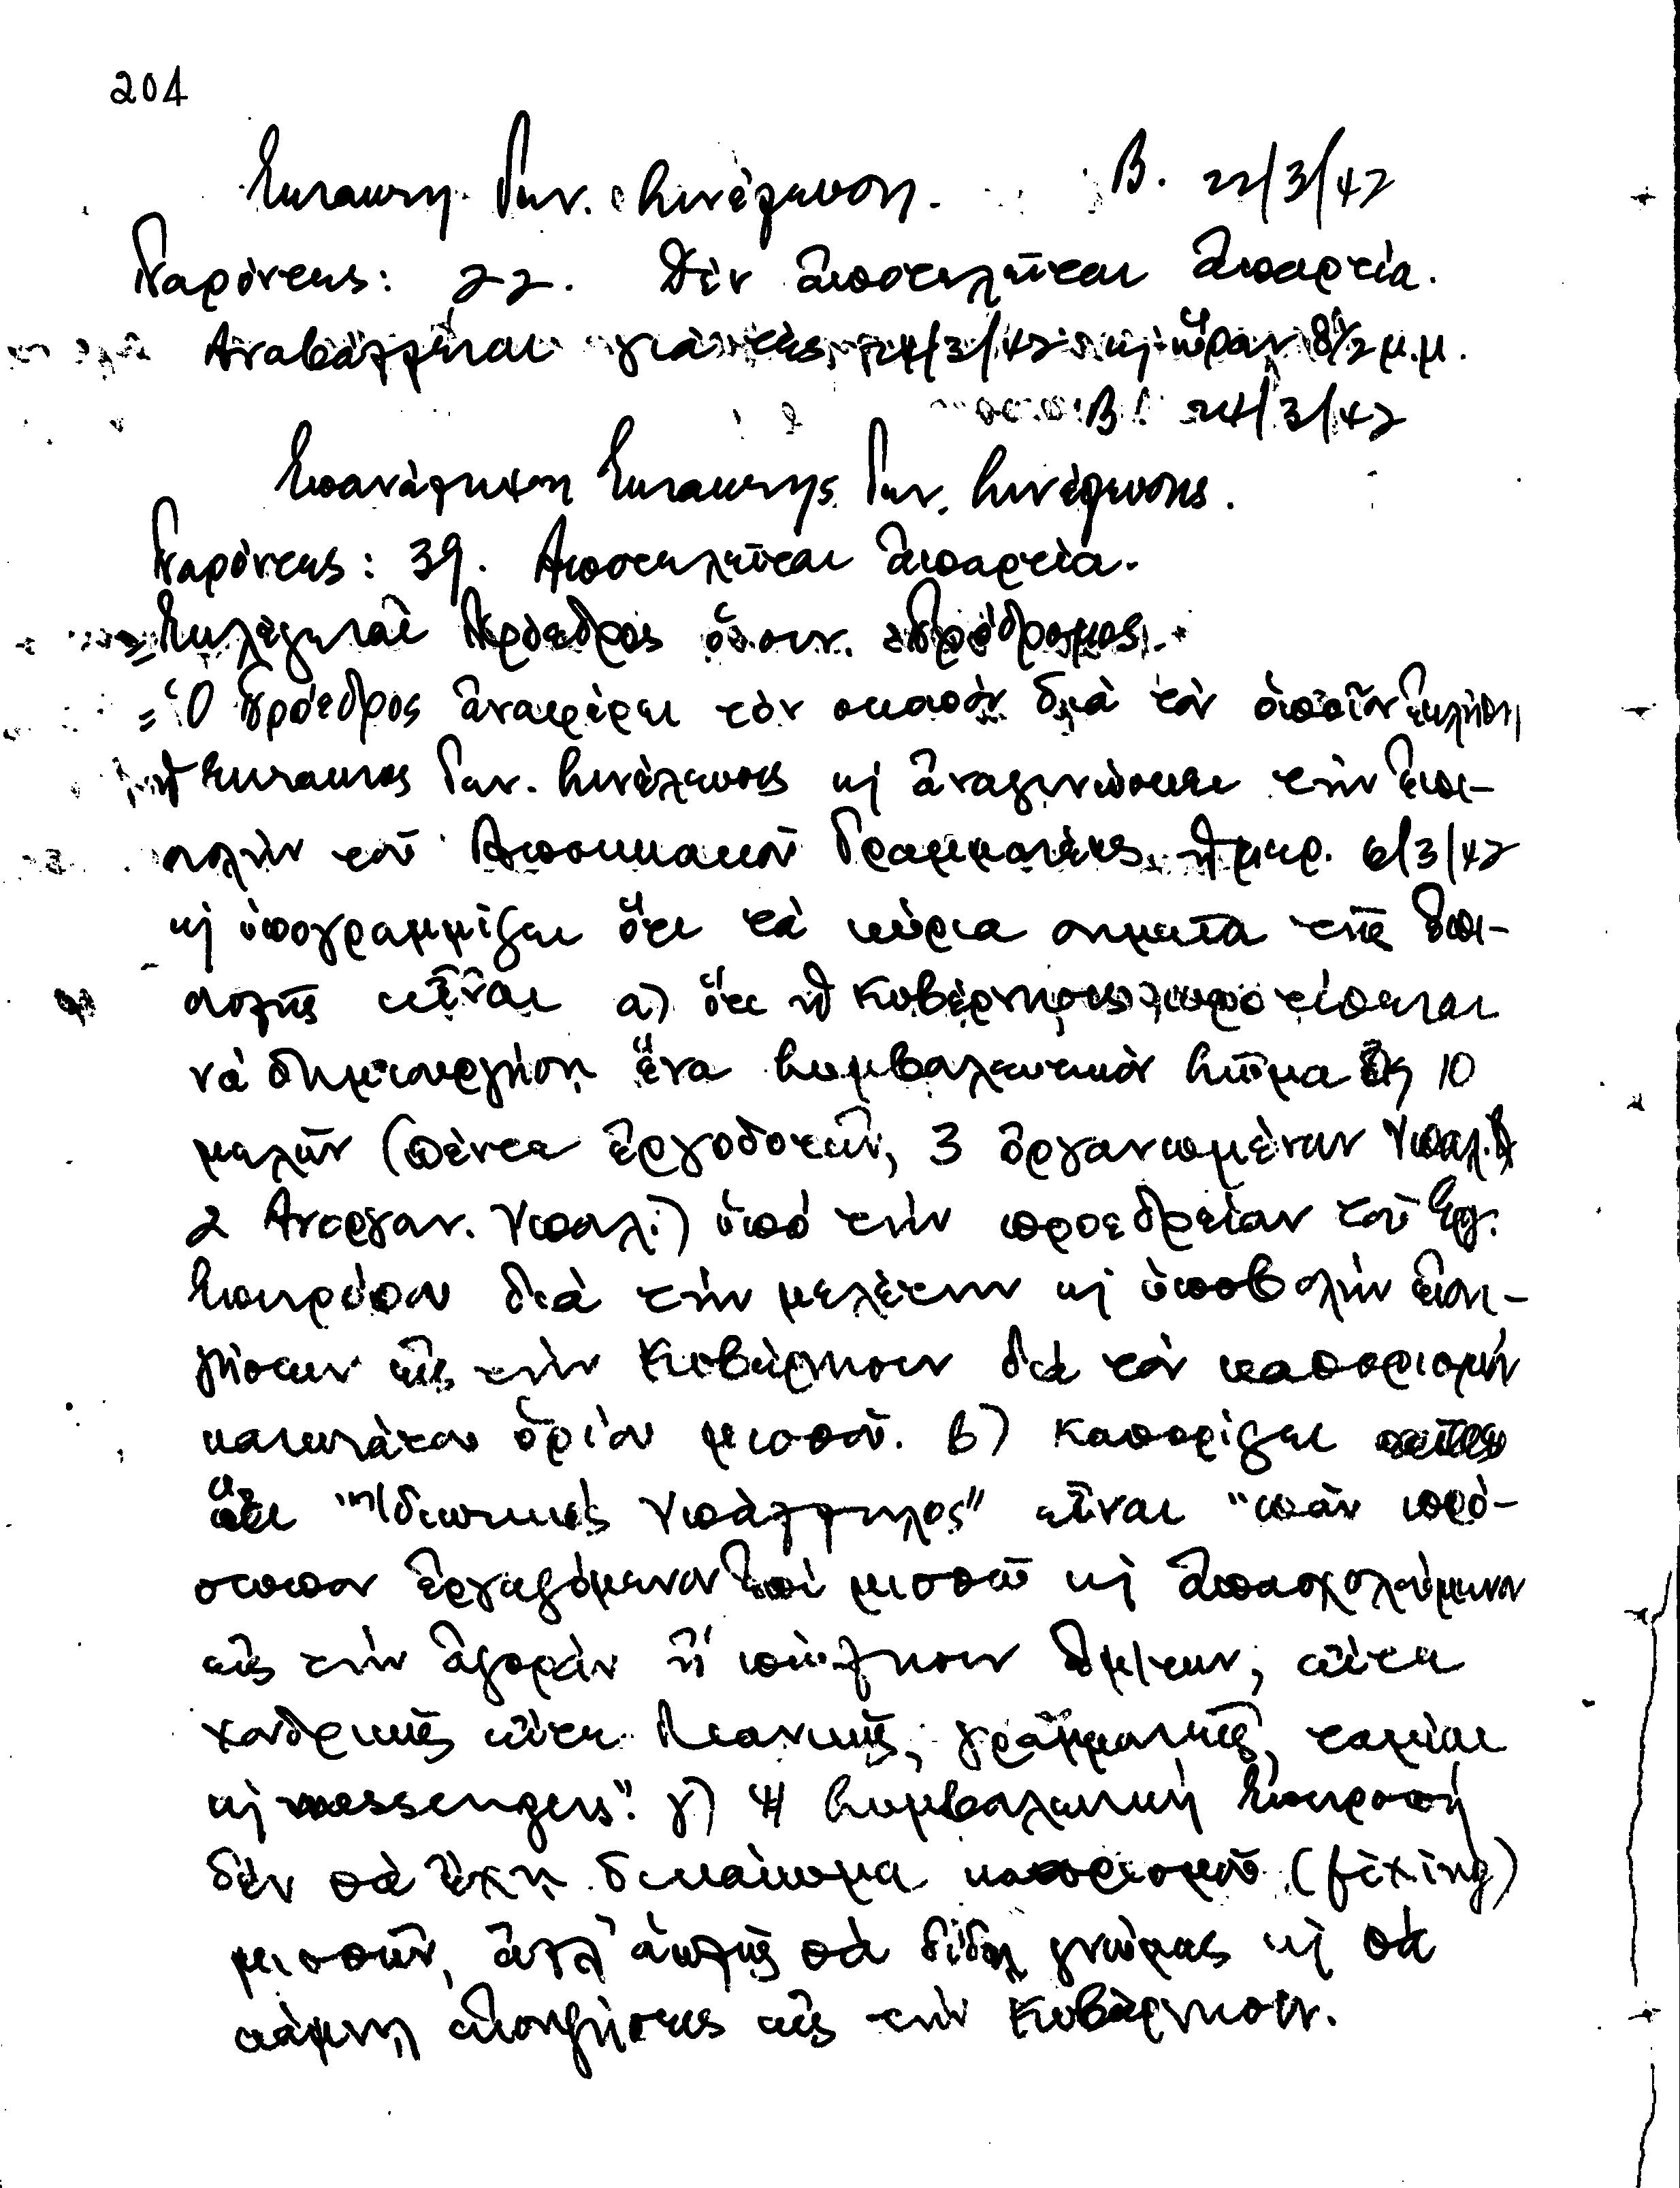 204
Έκτακτη Γεν. Συνέλευση. Β. 22/3/47
Παρόντες: 22. Δέν ἀποτελεῖται ἀπαρτία.
Αναβάλλεται γιά τές 24/3/47 κ ὥραν 8½ μ.μ.
Β. 24/3/47
Επανάληψη Έκτακτης Γεν. Συνέλευσης.
Παρόντες: 39. Αποτελεῖται ἀπαρτία.
= Εκλέγεται Πρόεδρος ὁ συν. Πρόδρομος.
= Ὁ Πρόεδρος ἀναφέρει τόν σκοπόν διά τόν ὁποῖον ἐκλήθη
ἡ Έκτακτος Γεν. Συνέλευσις κ ἀναγινώσκει τήν ἐπι-
στολήν τοῦ Αποικιακοῦ Γραμματέως ἡμερ. 6/3/47
κ ὑπογραμμίζει ὅτι τά κύρια σημεῖα τῆς ἐπι-
στολῆς εἶναι α) ὅτι ἡ Κυβέρνησις προτίθεται
νά δημιουργήση ἕνα Συμβουλευτικόν Σῶμα ἐκ 10
μελῶν (πέντε ἐργοδοτῶν, 3 ὀργανωμένων Υπαλ. κ
2 Ανοργαν. Υπαλ.) ὑπό τήν προεδρείαν τοῦ Εργ.
Επιτρόπου διά τήν μελέτην κ ὑποβολήν εἰση-
γήσεων εἰς τήν Κυβέρνησιν διά τόν καθορισμόν
κατωτάτου ὁρίου μισθοῦ. β) Καθορίζει
ὅτι "Ιδιωτικός Υπάλληλος" εἶναι "πᾶν πρό-
σωπον ἐργαζόμενον ἐπί μισθῶ κ ἀπασχολούμενον
εἰς τήν ἀγοράν ἤ πώλησιν ἐμ/των, εἴτε
χονδρικῆς εἴτε λιανικῆς, γραμματεῖς, ταμίαι
κ messengers". γ) Ἡ Συμβουλευτική Επιτροπή
δέν θά ἔχη δικαίωμα καθορισμοῦ (fixing)
μισθῶν, ἀλλ' ἁπλῶς θά δίδη γνώμας κ θά
κάμνη εἰσηγήσεις εἰς τήν Κυβέρνησιν.